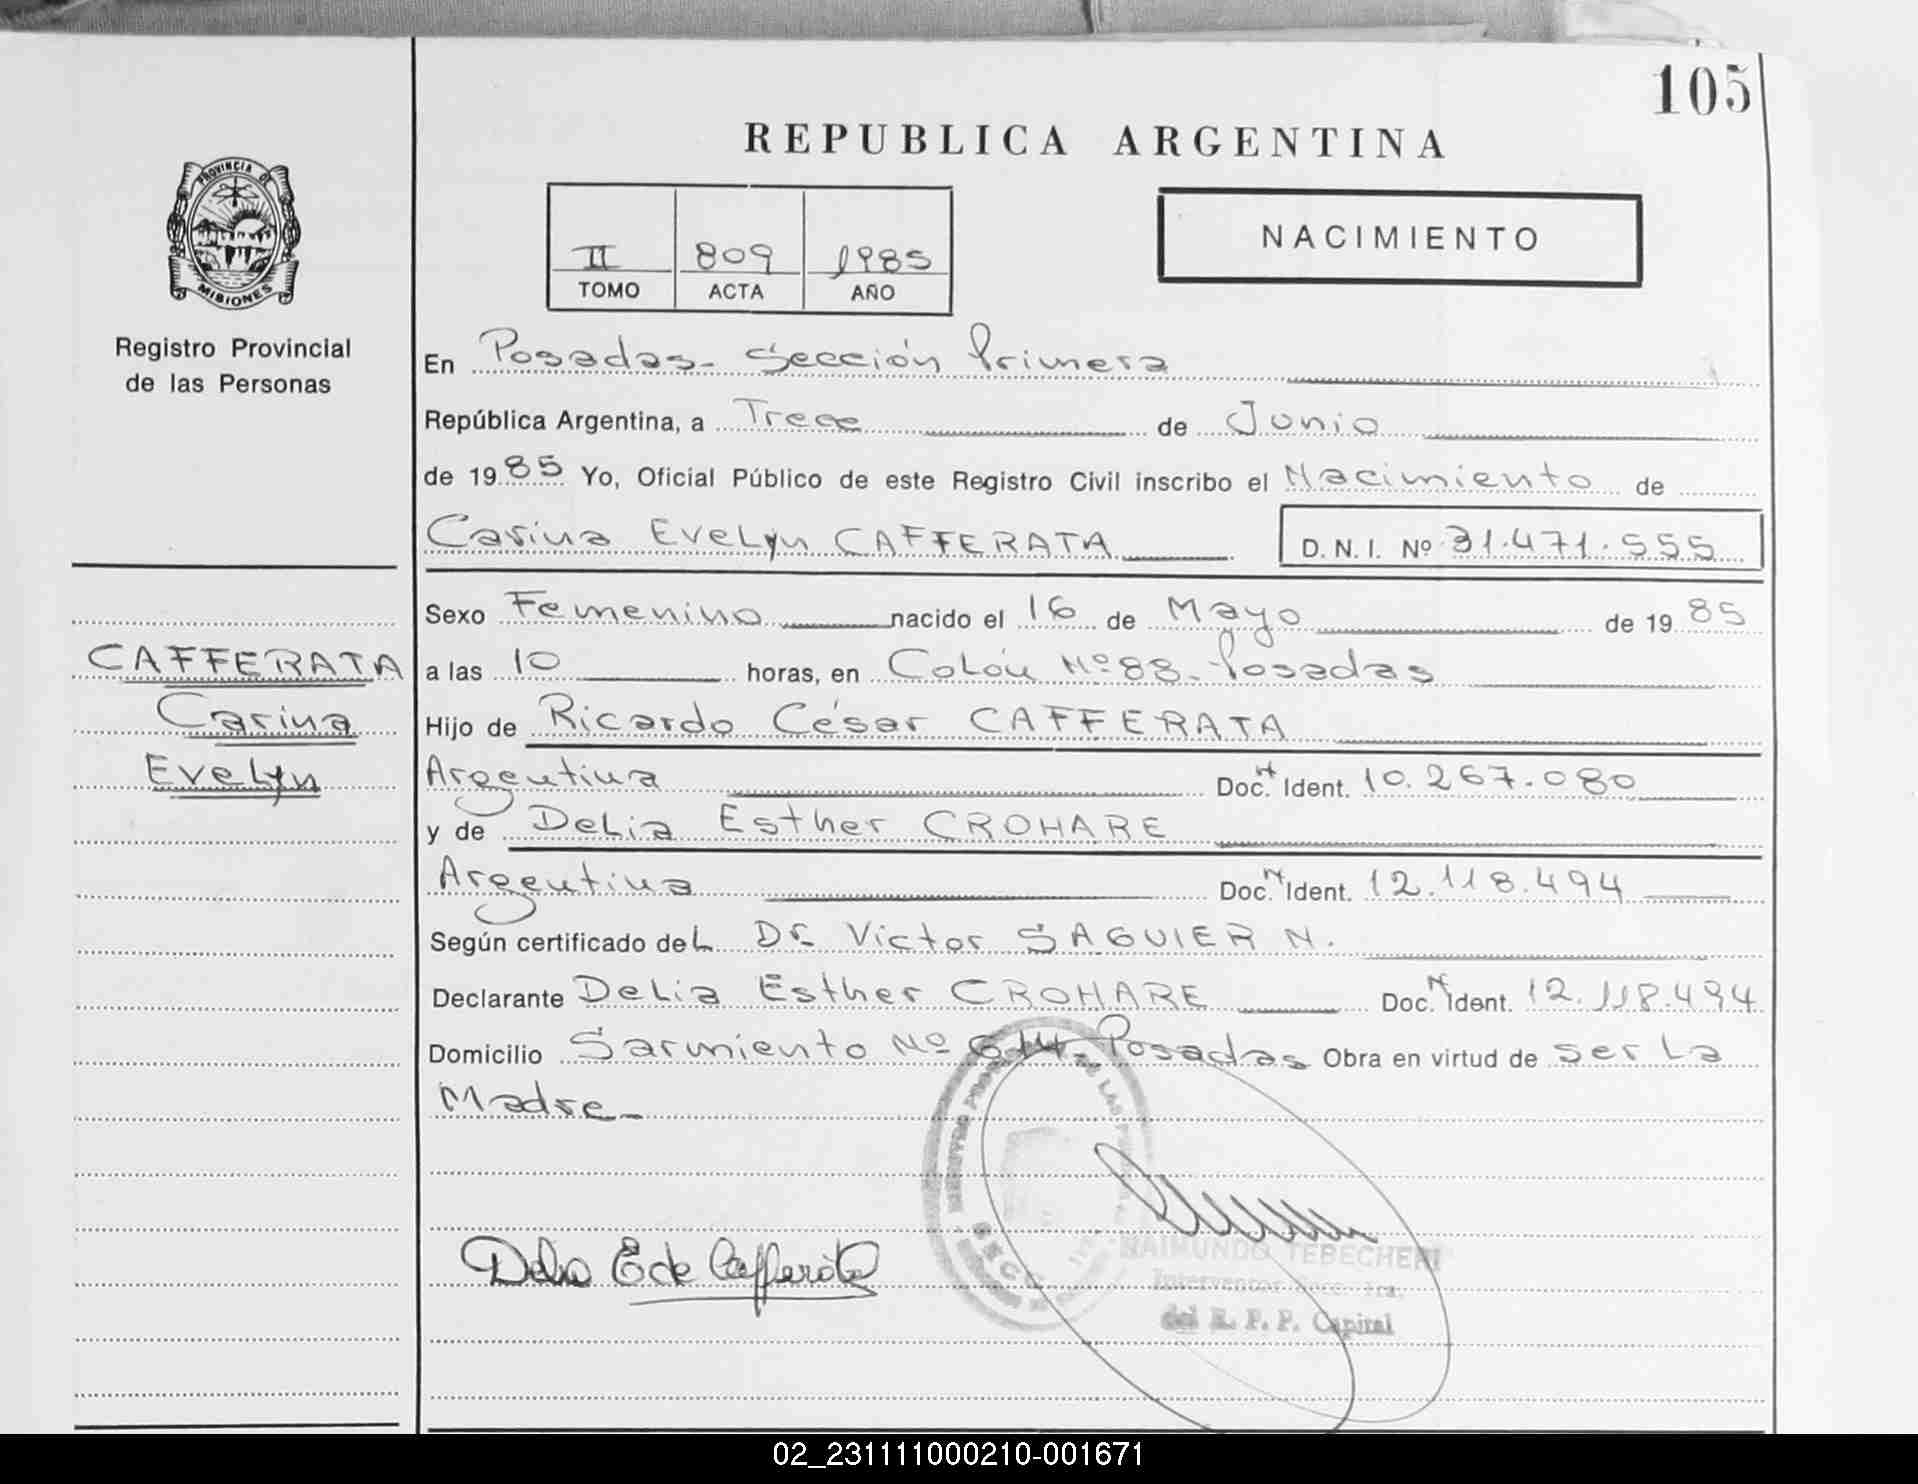 105
REPUBLICA ARGENTINA
PROVINCIA DE
MISIONES
Registro Provincial
de las Personas
II 809 1985
TOMO ACTA AÑO
NACIMIENTO
En Posadas- Sección Primera
República Argentina, a Trece de Junio
de 1985 Yo, Oficial Público de este Registro Civil inscribo el Nacimiento de
Carina Evelyn CAFFERATA D.N.I. Nº 31.471.555
Sexo Femenino nacido el 16 de Mayo de 1985
CAFFERATA
Carina
Evelyn
a las 10 horas, en Colón Nº 88- Posadas
Hijo de Ricardo César CAFFERATA
Argentina Doc. N Ident. 10.267.080
y de Delia Esther CROHARE
Argentina Doc. N Ident. 12.118.494
Según certificado del Dr. Victor SAGUIER N.
Declarante Delia Esther CROHARE Doc. N Ident. 12.118.494
Domicilio Sarmiento Nº 614- Posadas Obra en virtud de ser la
Madre-
Delia E de Cafferata
RAIMUNDO TEBECHERI
Interventor Secc. 1ra.
del R. P. P. Capital
02_231111000210-001671